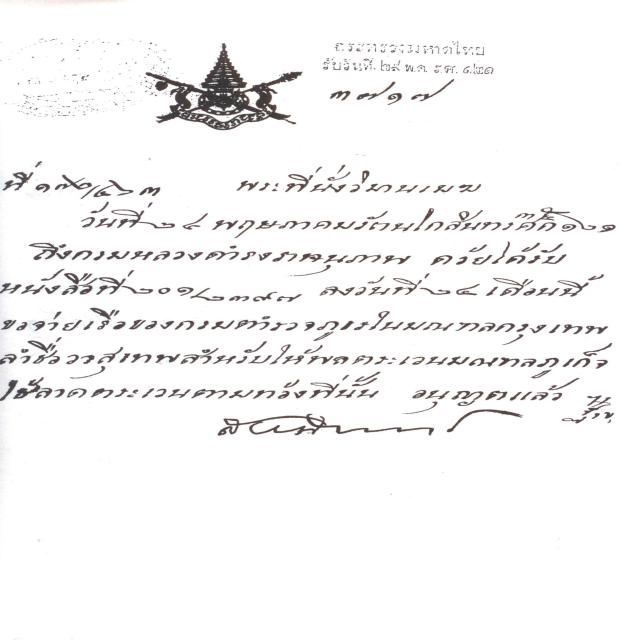 กระทรวงมหาดไทย
รับวันที่ ๒๕ พ.ค. ร.ศ. ๑๒๑
๓๗๑๗
ที่ ๑๗๐/๔๖๓ พระที่นั่งวิมานเมฆ
วันที่ ๒๔ พฤษภาคม รัตนโกสินทรศก ๑๒๑
ถึง กรมหลวงดำรงราชานุภาพ ด้วยได้รับ
หนังสือที่ ๒๐๑/๒๓๙๗ ลงวันที่ ๒๔ เดือนนี้
ขอจ่ายเรือของกรมตำรวจภูธรในมณฑลกรุงเทพ
ลำชื่อวาสุเทพสำหรับให้พลตระเวนมณฑลภูเก็จ
ใช้ลาดตระเวนตามทางที่นั้น อนุญาตแล้ว